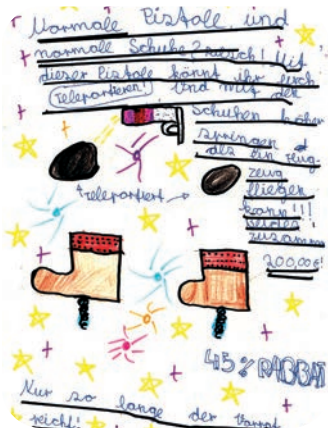 Normale Pistole und
normale Schuhe? Falsch! Mit
dieser Pistole könnt ihr euch
Teleportieren! Und mit den
Schuhen höher
springen als
ein Flug-
zeug
fliegen
kann!!!
Beides
zusammen
200,00€!
teleportiert
45% RABBAT
Nur so lange der Vorrat
reicht!